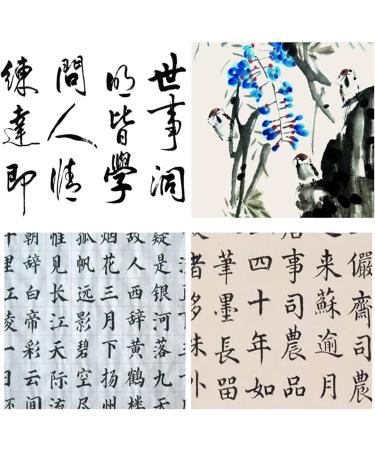 世事洞
明皆學
問人情
練達即
疑是银河落九天
故人西辞黄鹤楼
烟花三月下扬州
孤帆远影碧空尽
惟见长江天际流
朝辞白帝彩云间
里江陵
儼齋司農
来蘇逾月
事司農品
四十年如
筆墨長留
味外